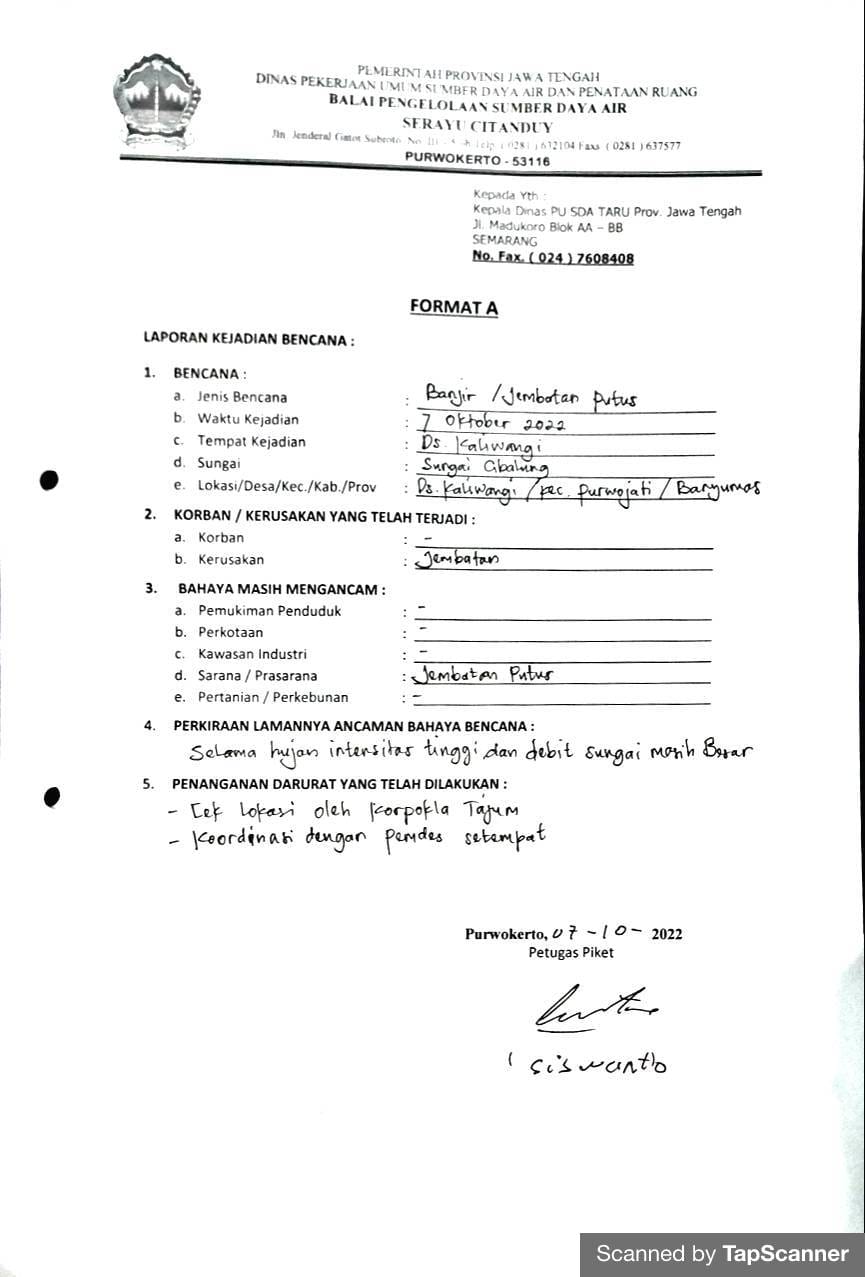 PEMERINTAH PROVINSI JAWA TENGAH
DINAS PEKERJAAN UMUM SUMBER DAYA AIR DAN PENATAAN RUANG
BALAI PENGELOLAAN SUMBER DAYA AIR
SERAYU CITANDUY
Jln. Jenderal Gatot Subroto No. III - Telp. ( 0281 ) 632104 Faxs ( 0281 ) 637577
PURWOKERTO - 53116
Kepada Yth :
Kepala Dinas PU SDA TARU Prov. Jawa Tengah
Jl. Madukoro Blok AA – BB
SEMARANG
No. Fax. ( 024 ) 7608408
FORMAT A
LAPORAN KEJADIAN BENCANA :
1. BENCANA :
a. Jenis Bencana : Banjir / Jembatan putus
b. Waktu Kejadian : 7 Oktober 2022
c. Tempat Kejadian : Ds. Kaliwangi
d. Sungai : Sungai Cibalung
e. Lokasi/Desa/Kec./Kab./Prov : Ds. Kaliwangi / Kec. purwojati / Banyumas
2. KORBAN / KERUSAKAN YANG TELAH TERJADI :
a. Korban : -
b. Kerusakan : Jembatan
3. BAHAYA MASIH MENGANCAM :
a. Pemukiman Penduduk : -
b. Perkotaan : -
c. Kawasan Industri : -
d. Sarana / Prasarana : Jembatan Putus
e. Pertanian / Perkebunan : -
4. PERKIRAAN LAMANNYA ANCAMAN BAHAYA BENCANA :
Selama hujan intensitas tinggi dan debit sungai masih Besar
5. PENANGANAN DARURAT YANG TELAH DILAKUKAN :
- Cek lokasi oleh Korpokla Tajum
- Koordinasi dengan pemdes setempat
Purwokerto, 07 - 10 - 2022
Petugas Piket
Siswanto
Scanned by TapScanner